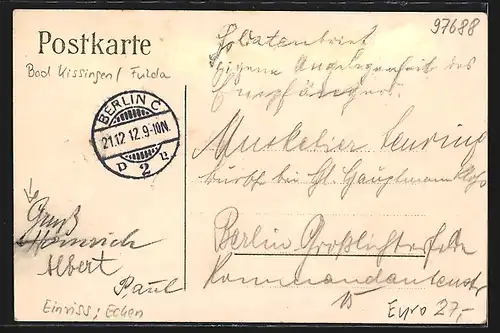 97688
Postkarte
Bad Kissingen / Fulda
BERLIN C
21.12 12. 9-10N.
2
Soldatenbrief
Eigene Angelegenheit des
Empfängers.
Musketier
bei Hauptmann
Berlin Großlichterfelde
Kommandantenstr
15
Gruß
Heinrich
Albert
Paul
Einriss; Ecken
Euro 27,-